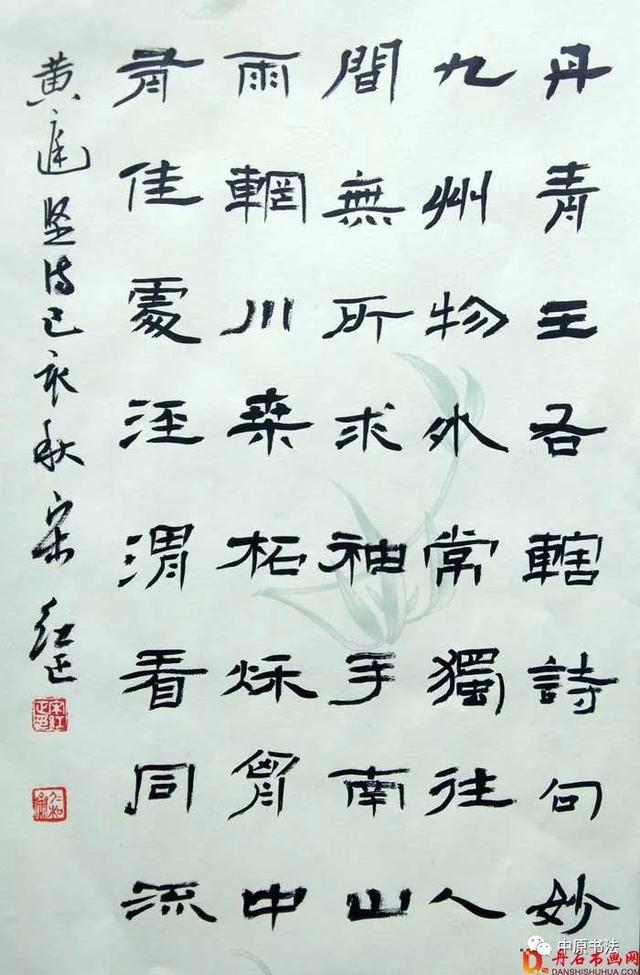 丹青王右轄詩句妙
九州物外常獨往人
間無所求袖手南山
雨輞川桒柘秋胷中
有佳處涇渭看同流
黄庭坚诗己亥秋宋红正
中原书法
丹石书画网
DANSHISHUHUA.COM